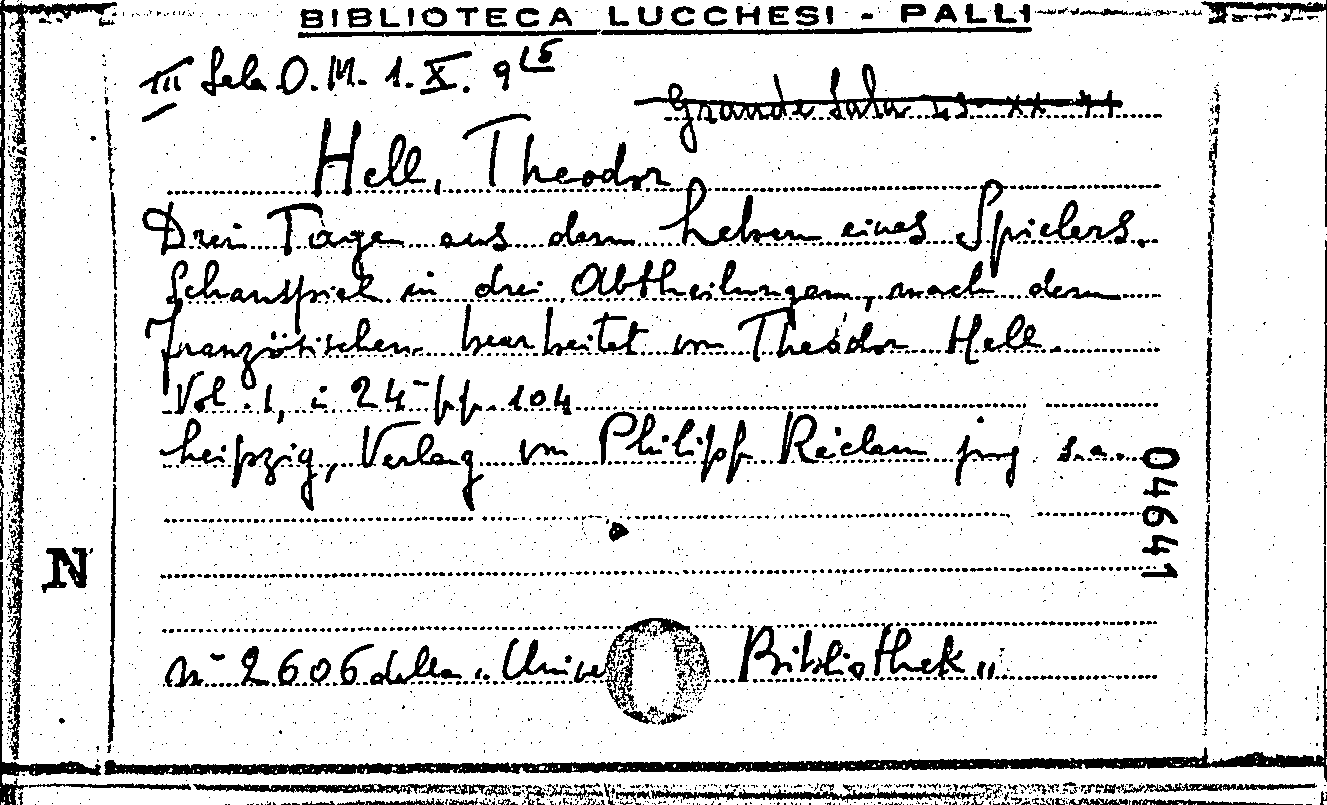 BIBLIOTECA LUCCHESI - PALLI
III Sala O. M. 1. X. 9
Grande Sala
Hell, Theodor
Drei Tage aus dem Leben eines Spielers.
Schauspiel in drei Abtheilungen, nach dem
französischen bearbeitet von Theodor Hell.
Vol. 1, i 24° pp. 104
Leipzig, Verlag von Philipp Reclam jung s.a.
04641
N
n° 2606 della "Unive Bibliothek"